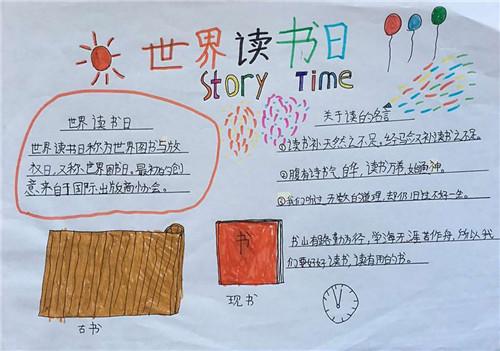 世界读书日
Story Time
世界读书日
世界读书日称为世界图书与放
权日,又称世界图书日。最初的创
意来自于国际出版商协会。
关于读的名言
①读书补天然之不足,经验又补读书之不足。
②腹有诗书气自华,读书万卷始通神。
③我们听过无数的道理,却仍旧过不好一生。
书山有路勤为径,学海无涯苦作舟,所以我
们要好好读书,读有用的书。
书
古书
现书